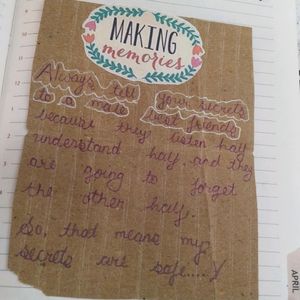 MAKING
memories
Always tell your secrets
to a male best friends
because they listen half
understand half, and they
are going to forget
the other half.
So, that means my
secrets are safe.....
APRIL